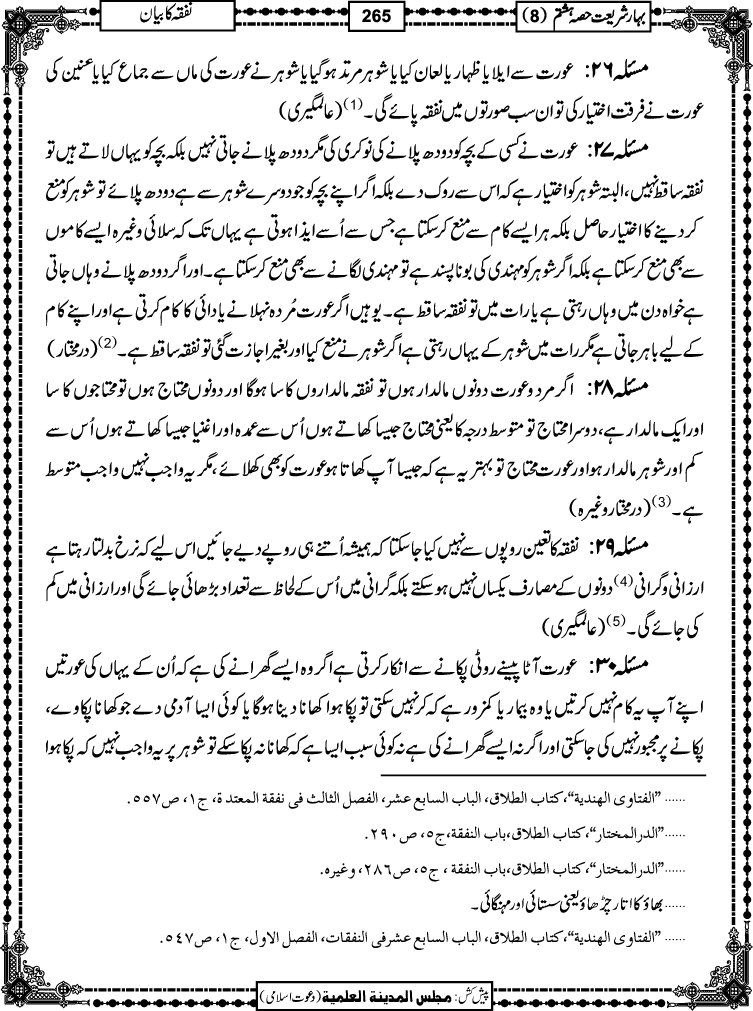 بہار شریعت حصہ ہشتم (8)
265
نفقہ کا بیان
مسئلہ ۲۶: عورت سے ایلا یا ظہار یا لعان کیا یا شوہر مرتد ہوگیا یا شوہر نے عورت کی ماں سے جماع کیا یا عنین کی
عورت نے فرقت اختیار کی تو ان سب صورتوں میں نفقہ پائے گی۔(1) (عالمگیری)
مسئلہ ۲۷: عورت نے کسی کے بچہ کو دودھ پلانے کی نوکری کی مگر دودھ پلانے جاتی نہیں بلکہ بچہ کو یہاں لاتے ہیں تو
نفقہ ساقط نہیں، البتہ شوہر کو اختیار ہے کہ اس سے روک دے بلکہ اگر اپنے بچہ کو جو دوسرے شوہر سے ہے دودھ پلائے تو شوہر کو منع
کر دینے کا اختیار حاصل بلکہ ہر ایسے کام سے منع کرسکتا ہے جس سے اُسے ایذا ہوتی ہے یہاں تک کہ سلائی وغیرہ ایسے کاموں
سے بھی منع کرسکتا ہے بلکہ اگر شوہر کو مہندی کی بو ناپسند ہے تو مہندی لگانے سے بھی منع کرسکتا ہے۔ اور اگر دودھ پلانے وہاں جاتی
ہے خواہ دن میں وہاں رہتی ہے یا رات میں تو نفقہ ساقط ہے۔ یوہیں اگر عورت مُردہ نہلانے یا دائی کا کام کرتی ہے اور اپنے کام
کے لیے باہر جاتی ہے مگر رات میں شوہر کے یہاں رہتی ہے اگر شوہر نے منع کیا اور بغیر اجازت گئی تو نفقہ ساقط ہے۔(2) (درمختار)
مسئلہ ۲۸: اگر مرد و عورت دونوں مالدار ہوں تو نفقہ مالداروں کا سا ہوگا اور دونوں محتاج ہوں تو محتاجوں کا سا
اور ایک مالدار ہے، دوسرا محتاج تو متوسط درجہ کا یعنی محتاج جیسا کھاتے ہوں اُس سے عمدہ اور اغنیا جیسا کھاتے ہوں اُس سے
کم اور شوہر مالدار ہو اور عورت محتاج تو بہتر یہ ہے کہ جیسا آپ کھاتا ہو عورت کو بھی کھلائے، مگر یہ واجب نہیں واجب متوسط
ہے۔(3) (درمختار وغیرہ)
مسئلہ ۲۹: نفقہ کا تعین روپوں سے نہیں کیا جاسکتا کہ ہمیشہ اُتنے ہی روپے دیے جائیں اس لیے کہ نرخ بدلتا رہتا ہے
ارزانی و گرانی(4) دونوں کے مصارف یکساں نہیں ہوسکتے بلکہ گرانی میں اُس کے لحاظ سے تعداد بڑھائی جائے گی اور ارزانی میں کم
کی جائے گی۔(5) (عالمگیری)
مسئلہ ۳۰: عورت آٹا پیسنے روٹی پکانے سے انکار کرتی ہے اگر وہ ایسے گھرانے کی ہے کہ اُن کے یہاں کی عورتیں
اپنے آپ یہ کام نہیں کرتیں یا وہ بیمار یا کمزور ہے کہ کر نہیں سکتی تو پکا ہوا کھانا دینا ہوگا یا کوئی ایسا آدمی دے جو کھانا پکاوے،
پکانے پر مجبور نہیں کی جاسکتی اور اگر نہ ایسے گھرانے کی ہے نہ کوئی سبب ایسا ہے کہ کھانا نہ پکا سکے تو شوہر پر یہ واجب نہیں کہ پکا ہوا
......”الفتاوی الھندیة“، کتاب الطلاق، الباب السابع عشر، الفصل الثالث فی نفقة المعتدة، ج۱، ص۵۵۷.
......”الدرالمختار“، کتاب الطلاق، باب النفقة، ج۵، ص۲۹۰.
......”الدرالمختار“، کتاب الطلاق، باب النفقة، ج۵، ص۲۸۶، وغیرہ.
......بھاؤ کا اتار چڑھاؤ یعنی سستائی اور مہنگائی۔
......”الفتاوی الھندیة“، کتاب الطلاق، الباب السابع عشر فی النفقات، الفصل الاول، ج۱، ص۵۴۷.
پیش کش: مجلس المدینة العلمیة (دعوت اسلامی)